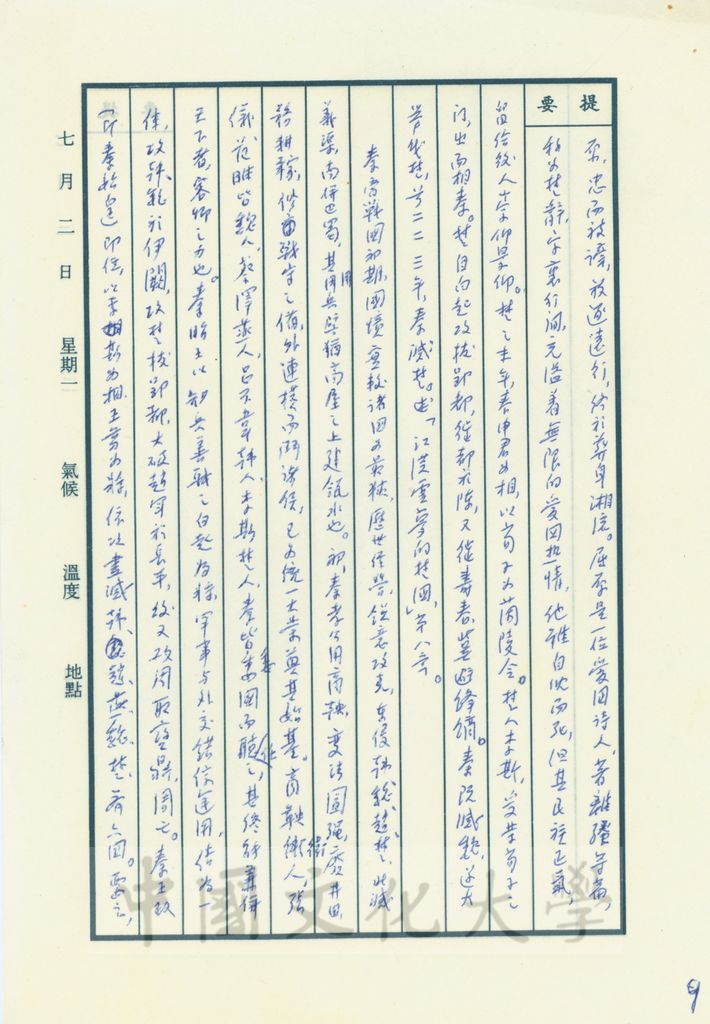 提要
原，忠而被謗，放逐遠行，終於葬身湘流。屈原是一位愛国诗人，著離騷等篇，
称为楚辭，字裏行间，充溢着無限的爱国热情，他雖自沈而死，但其民族正氣，
留给後人崇仰景仰。楚之末年，春申君为相，以荀子为蘭陵令。楚人李斯，受業荀子之
门，出而相秦。楚自白起攻拔郢都，徙都於陳，又徙壽春，蓋避鋒鏑。秦既滅魏，遂大
舉伐楚，前二二三年，秦滅楚。述「江漢雲夢的楚國」第八章。
秦为戰國初期，國境實較诸国为最狹，歷世经營，銳意攻克，東侵韓、魏、趙、楚，北滅
義渠，南併巴蜀，其用兵譬猶高屋之上建瓴水也。初，秦孝公用商鞅，變法圖强，廢井田，
務耕稼，修戰守之備，外連横而鬥诸侯，已为统一大業奠其始基。商鞅衛人，張
儀、范睢皆魏人，蔡澤燕人，吕不韋韓人，李斯楚人，秦皆委國而聽之，其终能兼併
天下者，客卿之力也。秦昭王以知兵善戰之白起为将，軍事与外交錯综運用，结为一
体，攻韓魏於伊闕，攻楚拔郢都，大破趙軍於長平，後又攻周取寶鼎，周亡。秦王政
（即秦始皇）即位，以李斯为相，王翦为将，依次盡滅韓、趙、燕、魏、楚、齊六国。要之，
七月二日　星期一　氣候　溫度　地點
中國文化大學
9